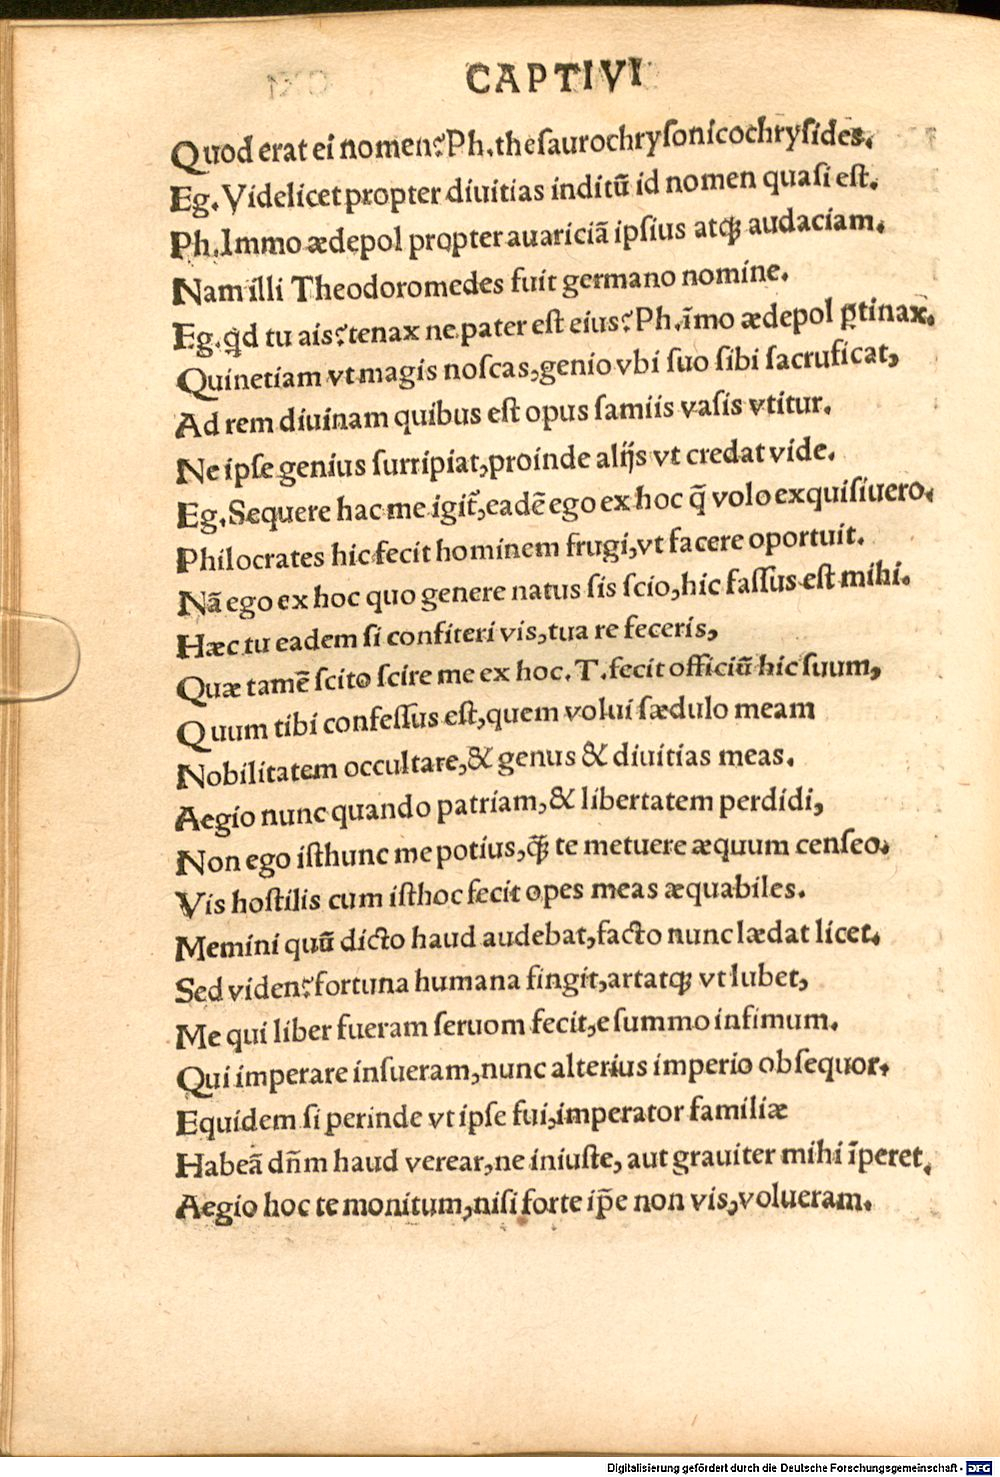 CAPTIVI
Quod erat ei nomen? Ph. thesaurochrysonicochrysides.
Eg. Videlicet propter diuitias inditũ id nomen quasi est.
Ph. Immo ædepol propter auariciã ipsius atqȝ audaciam.
Nam illi Theodoromedes fuit germano nomine.
Eg. qd tu ais? tenax ne pater est eius? Ph. ĩmo ædepol ꝑtinax.
Quinetiam vt magis noscas, genio vbi suo sibi sacruficat,
Ad rem diuinam quibus est opus samiis vasis vtitur.
Ne ipse genius surripiat, proinde alijs vt credat vide.
Eg. Sequere hac me igit̃, eadẽ ego ex hoc q̃ volo exquisiuero.
Philocrates hic fecit hominem frugi, vt facere oportuit.
Nã ego ex hoc quo genere natus sis scio, hic fassus est mihi.
Hæc tu eadem si confiteri vis, tua re feceris,
Quæ tamẽ scito scire me ex hoc. T. fecit officiũ hic suum,
Quum tibi confessus est, quem volui sædulo meam
Nobilitatem occultare, & genus & diuitias meas.
Aegio nunc quando patriam, & libertatem perdidi,
Non ego isthunc me potius, q̃ȝ te metuere æquum censeo.
Vis hostilis cum isthoc fecit opes meas æquabiles.
Memini quũ dicto haud audebat, facto nunc lædat licet.
Sed viden? fortuna humana fingit, artatqȝ vt lubet,
Me qui liber fueram seruom fecit, e summo infimum.
Qui imperare insueram, nunc alterius imperio obsequor.
Equidem si perinde vt ipse fui, imperator familiæ
Habeã dñm haud verear, ne iniuste, aut grauiter mihi ĩperet.
Aegio hoc te monitum, nisi forte ip̃e non vis, volueram.
Digitalisierung gefördert durch die Deutsche Forschungsgemeinschaft - DFG